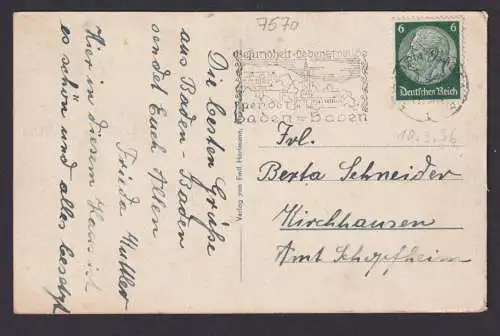 7570
Gesundheit - Lebensfreude
spendet
Baden-Baden
6
Deutsches Reich
18.3.36
Die besten Grüße
aus Baden - Baden
sendet Euch Allen
Frieda
Hier in diesem Haus ist
es schön und alles besetzt
Verlag von Emil Hartmann,
Frl.
Berta Schneider
Kirchhausen
Amt Schopfheim